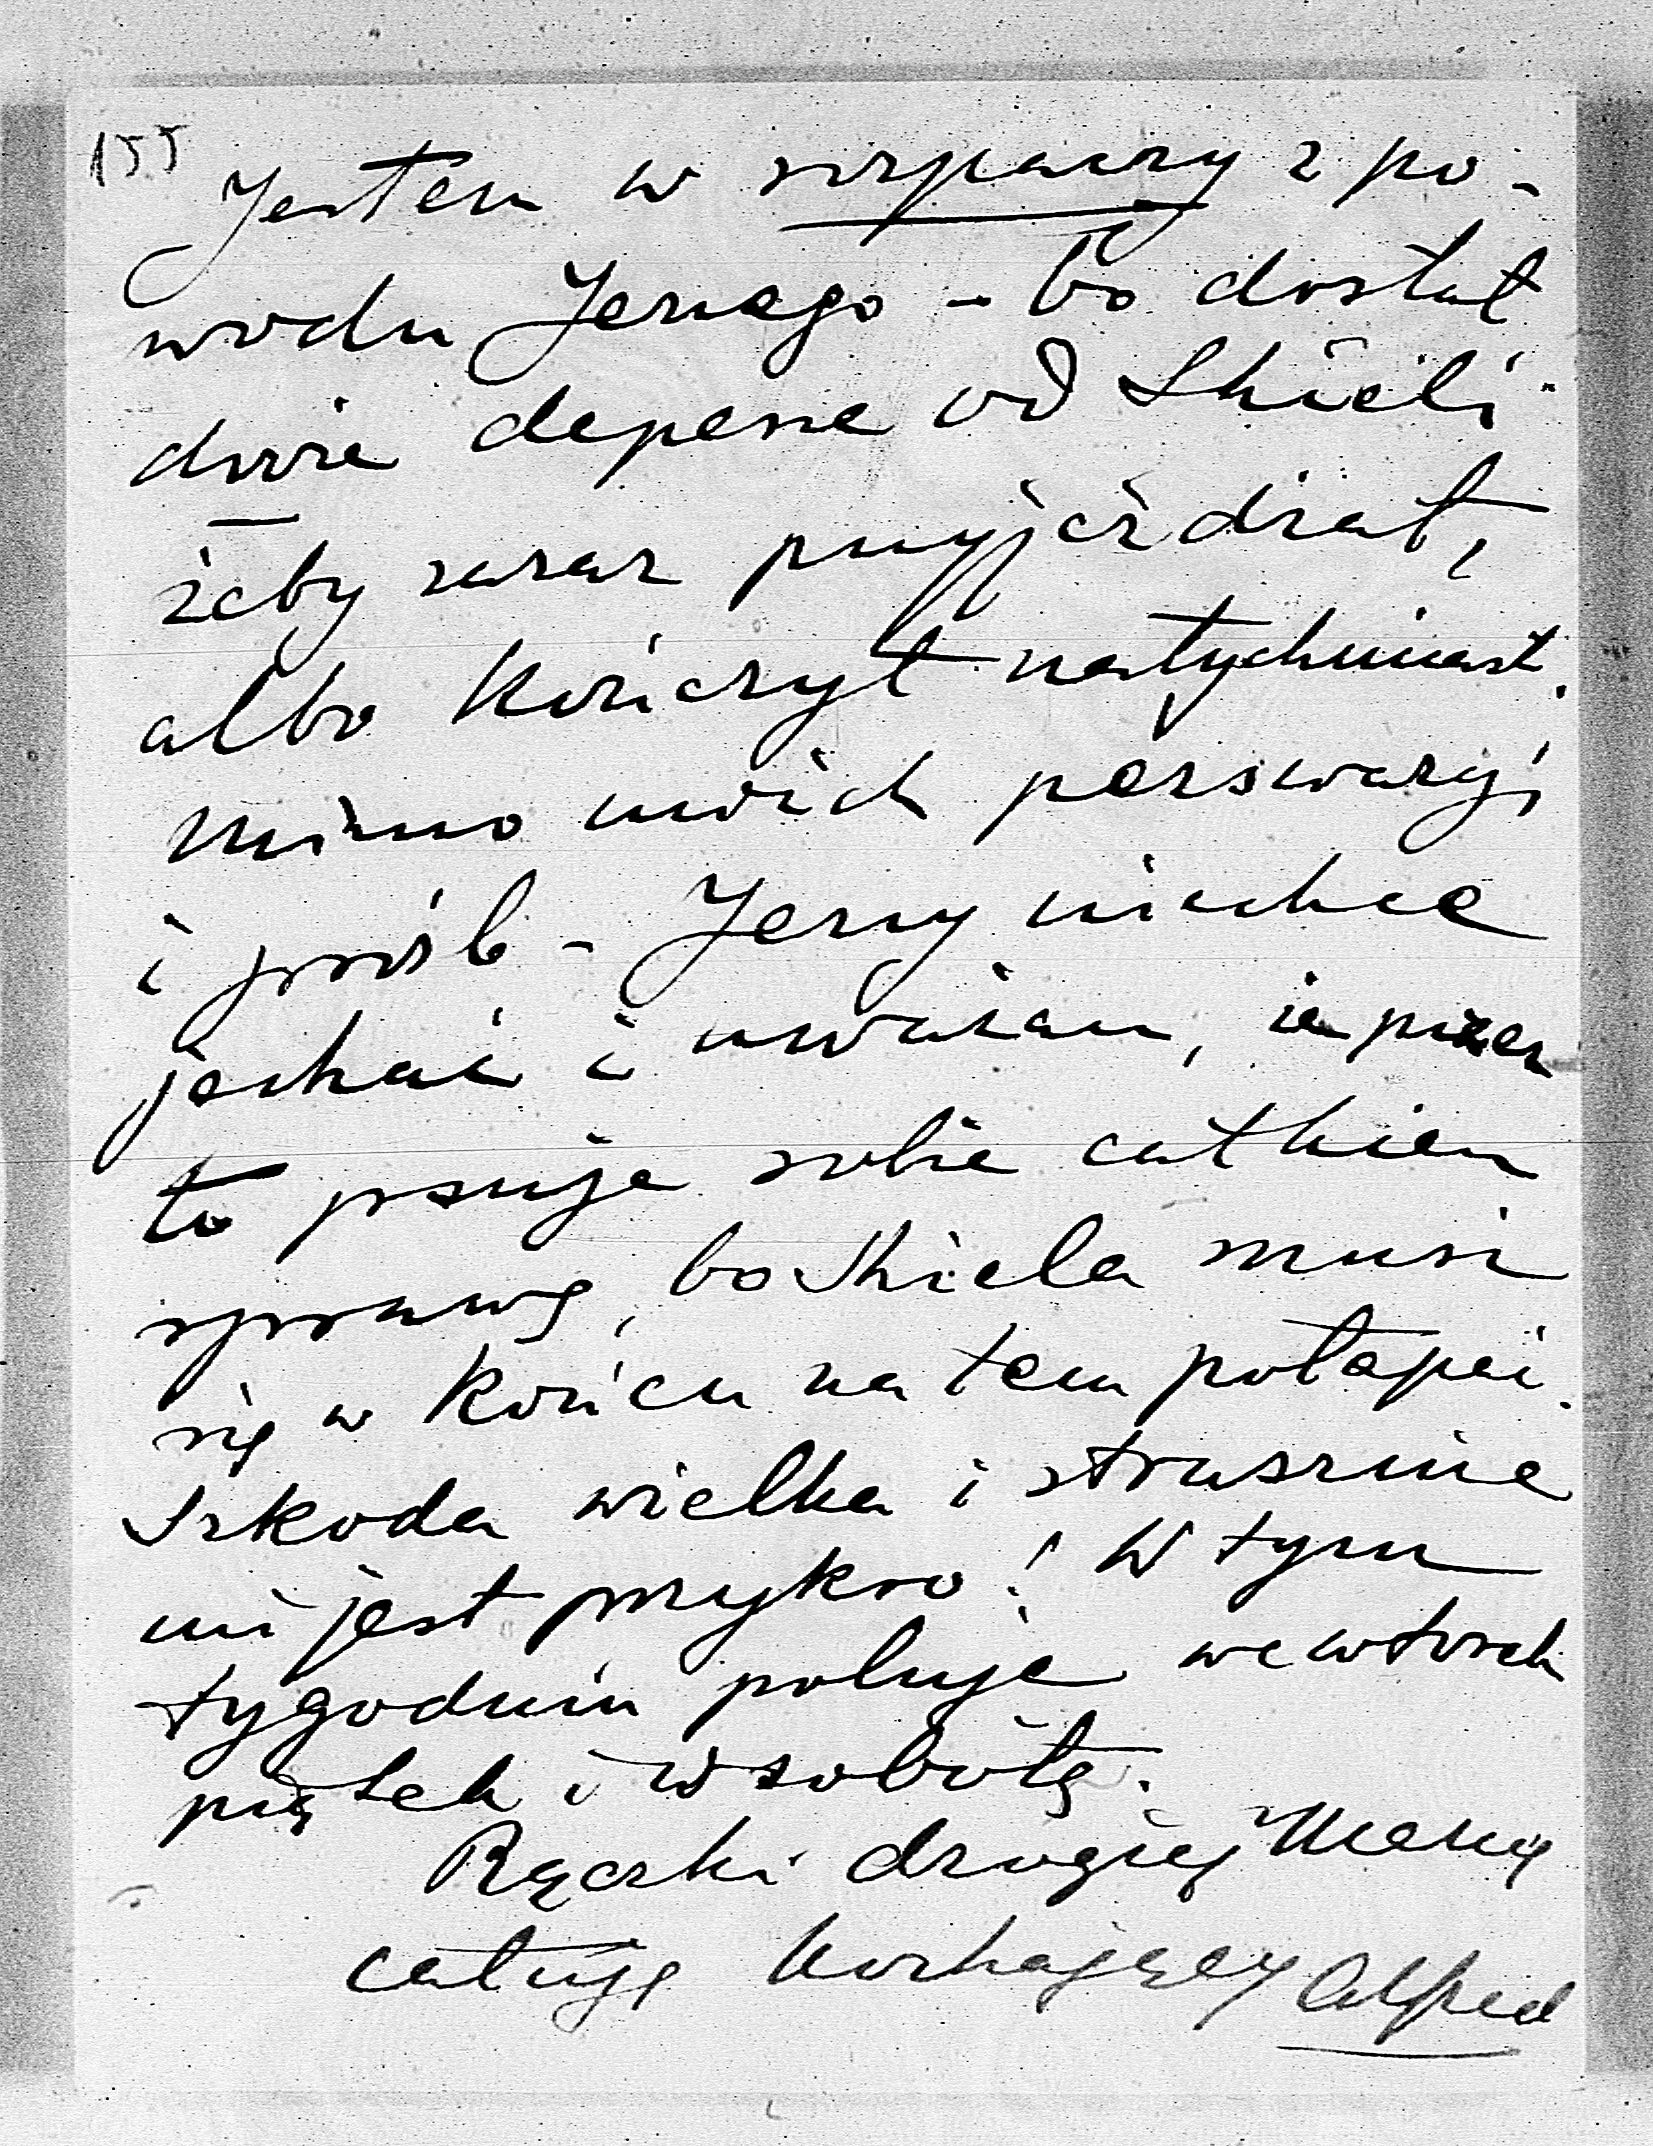 155
Jestem w rozpaczy z po-
wodu Jerzego - bo dostał
dwie depesze od Skieli
żeby zaraz przyjeżdżał,
albo kończył natychmiast.
Mimo moich perswazyj
i próśb - Jerzy niechce
jechać i uważam, że przez
to psuje sobie całkiem
sprawę, bo Skiela musi
się w końcu na tem połapać.
Szkoda wielka i strasznie
mi jest przykro! W tym
tygodniu poluje we wtorek
piątek i w sobotę.
Rączki drogiej Mamy
całuję kochający Alfred